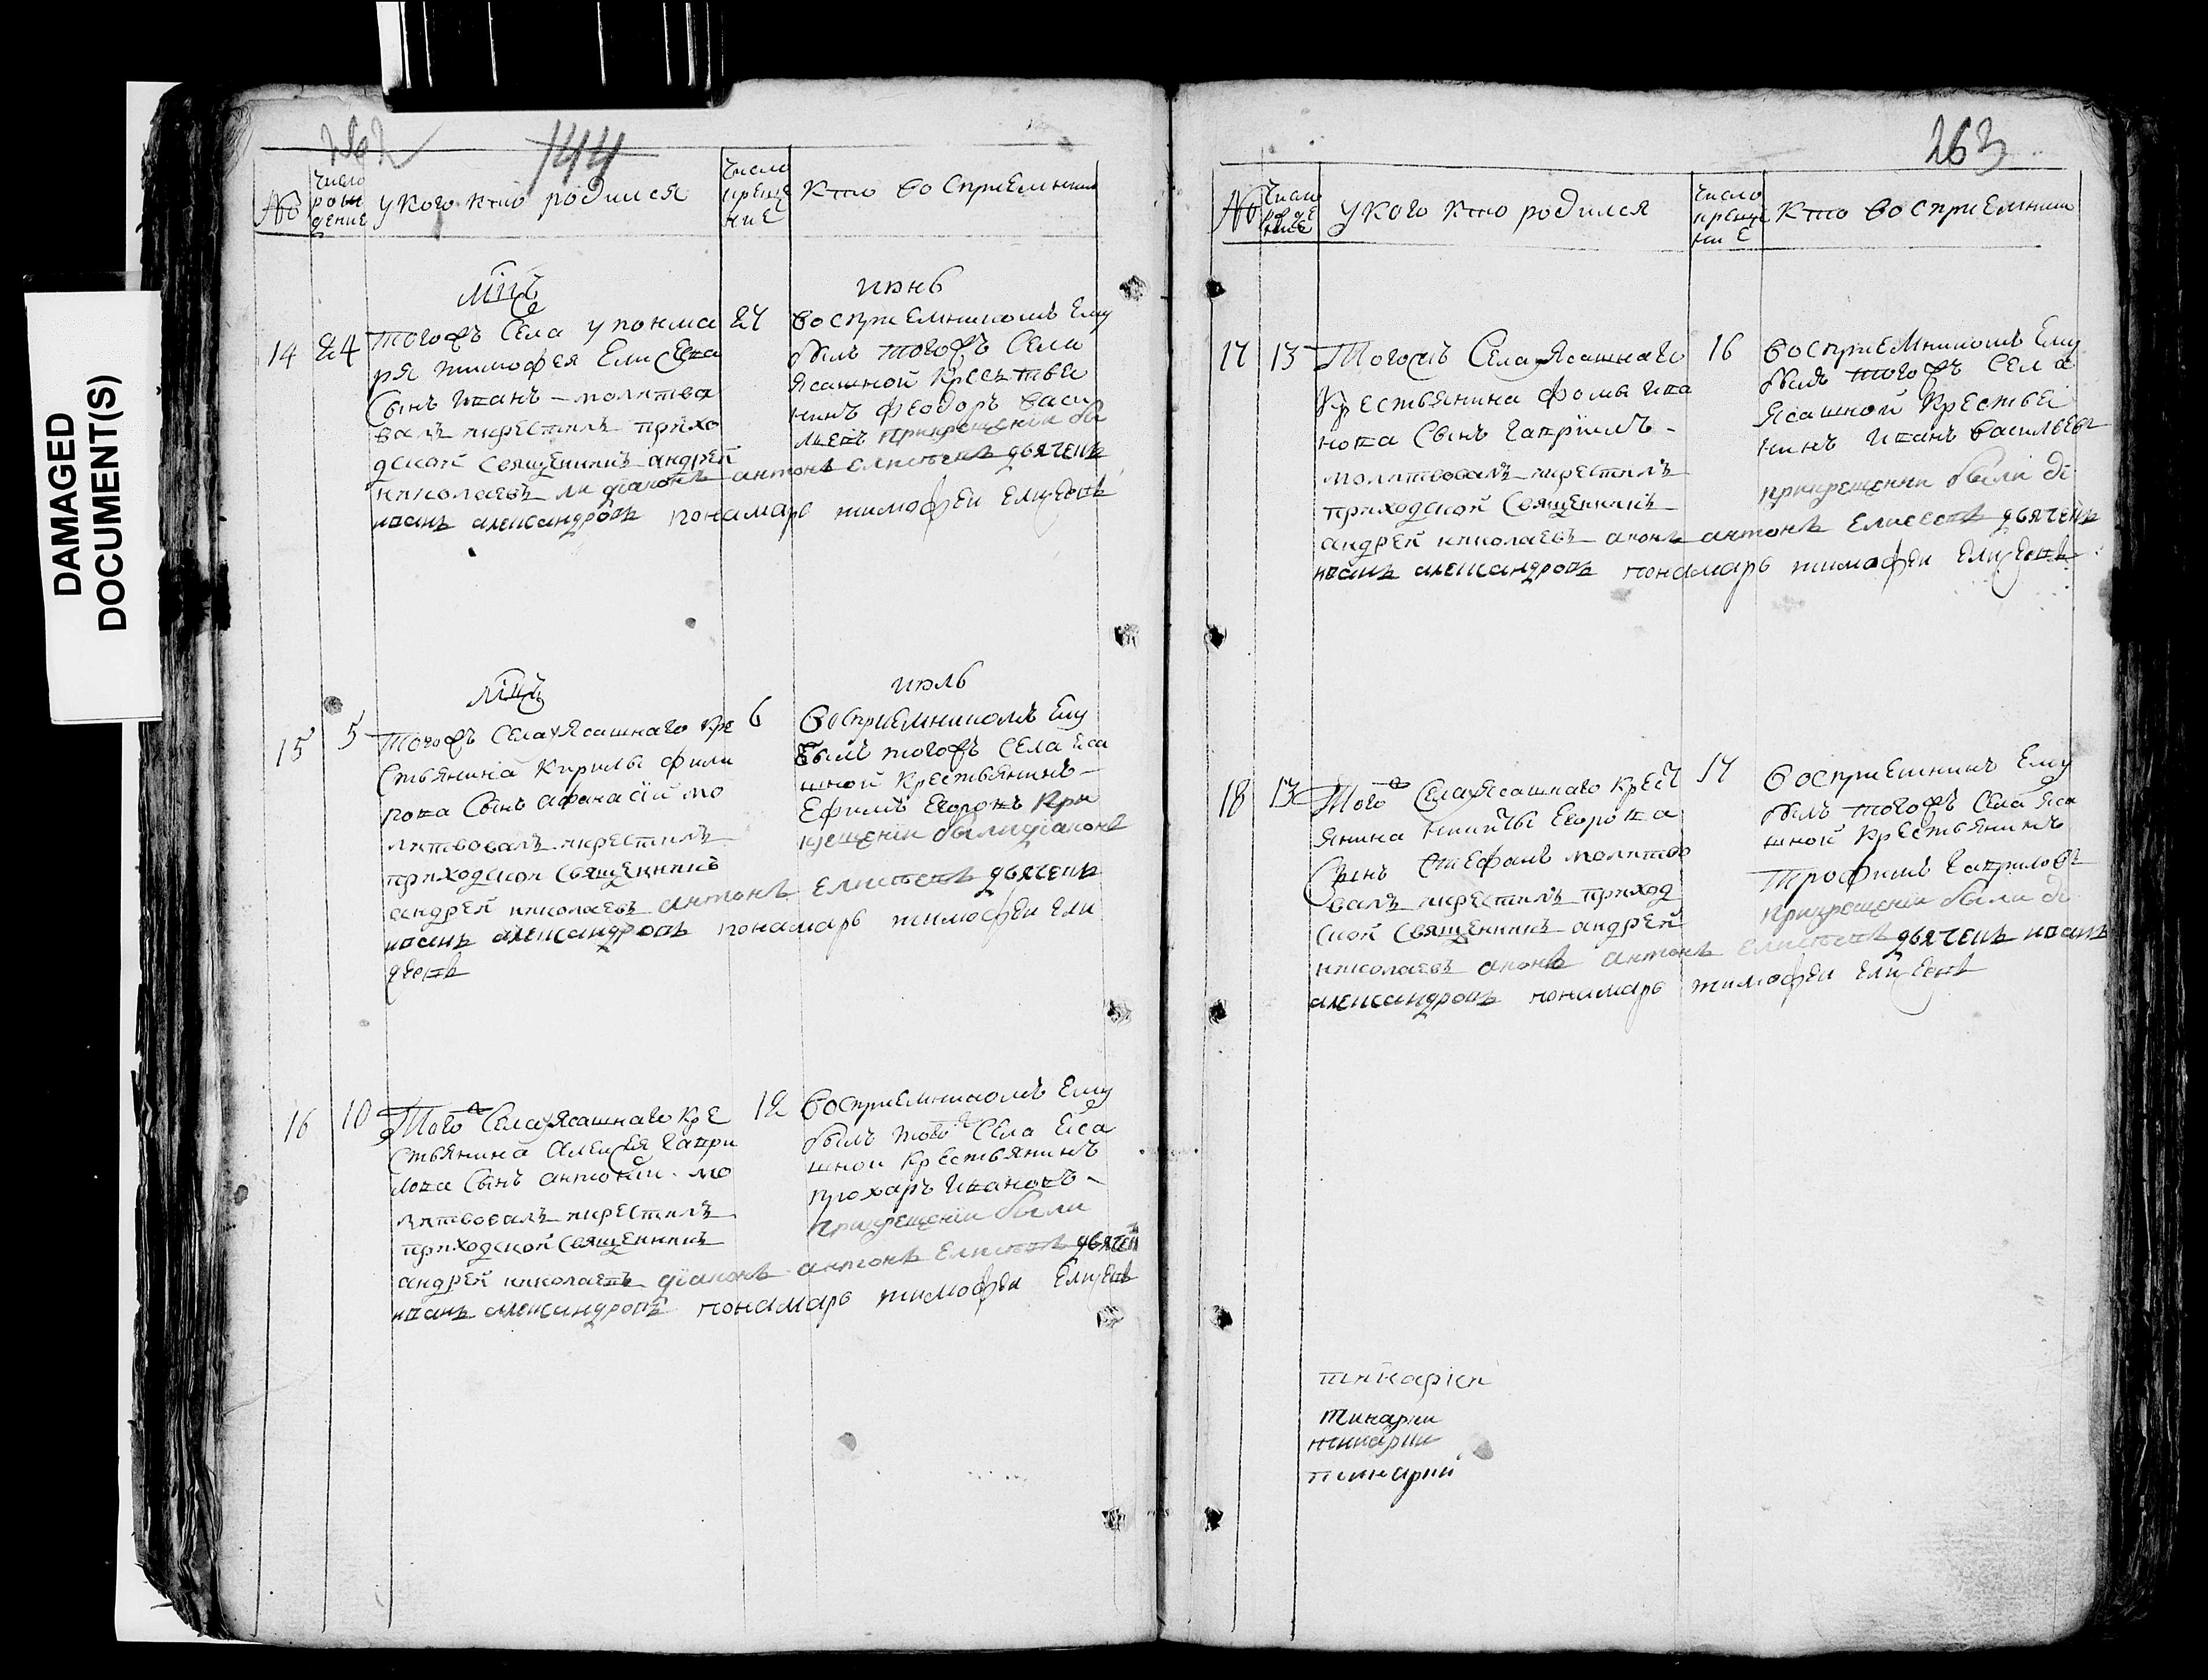 DAMAGED
DOCUMENT(S)
262
144
№
Число рождение
У кого кто родился
Число крещение
Кто восприемники
мцъ
июнь
14
24
тогожъ села у понма
24
ря тимофея Елисеева
сынъ Иванъ – молитво
валъ икрестилъ прихо
дской священникъ андрей
николаевъ
иванъ александровъ понамарь тимофеи Елисеевъ
восприемникомъ Ему
былъ тогожъ села
Ясашной крестья
нинъ феодоръ васи
льевъ прикрещении бы
ли дiаконъ антонъ елисеевъ дьячекъ
мцъ
июль
15
5
тогожъ села у Ясашнаго кре
6
стьянина Кирилы фили
пова сынъ афанасiй мо
литвовалъ икрестилъ
приходской священникъ
андрей николаевъ антонъ Елисеевъ дьячекъ
иванъ александровъ понамарь тимофеи Ели
сеевъ
восприемникомъ Ему
былъ тогожъ села яса
шной крестьянинъ –
Ефимъ Егоровъ при
крещенiи были дiаконъ
16
10
Того ж села у Ясашнаго кре
12
стьянина Алексея гаври
лова сынъ антонiи мо
литвовалъ икрестилъ
приходской священникъ
андрей николаевъ дiаконъ антонъ Елисеевъ дьячек
иванъ александровъ понамарь тимофеи Елисеевъ
восприемникомъ Ему
былъ того ж села Яса
шнои крестьянинъ
Прохаръ Ивановъ –
прикрещенiи были
263
№
Число рожде ние
У кого кто родился
Число креще ние
Кто восприемники
17
13
Тогожъ села у Ясашнаго
16
крестьянина фомы ива
нова сынъ гаврiилъ –
молитвовалъ икрестилъ
приходской священникъ
андрей николаевъ аконъ антонъ Елисеевъ дьячекъ
иванъ александровъ понамарь тимофеи Елисеевъ
восприемникомъ Ему
былъ тогожъ села
Ясашной крестья
нинъ иванъ васильевъ
прикрещении были дi
18
13
Того ж села у Ясашнаго крест
17
янина никиты Егорова
сынъ стефанъ молитво
валъ икрестилъ приход
ской священникъ андрей
николаевъ аконъ антонъ елисеевъ дьячекъ иванъ
александровъ понамарь тимофеи Елисеевъ
восприемникъ Ему
былъ тогожъ села Яса
шной крестьянинъ
трофимъ гавриловъ
прикрещении были дi